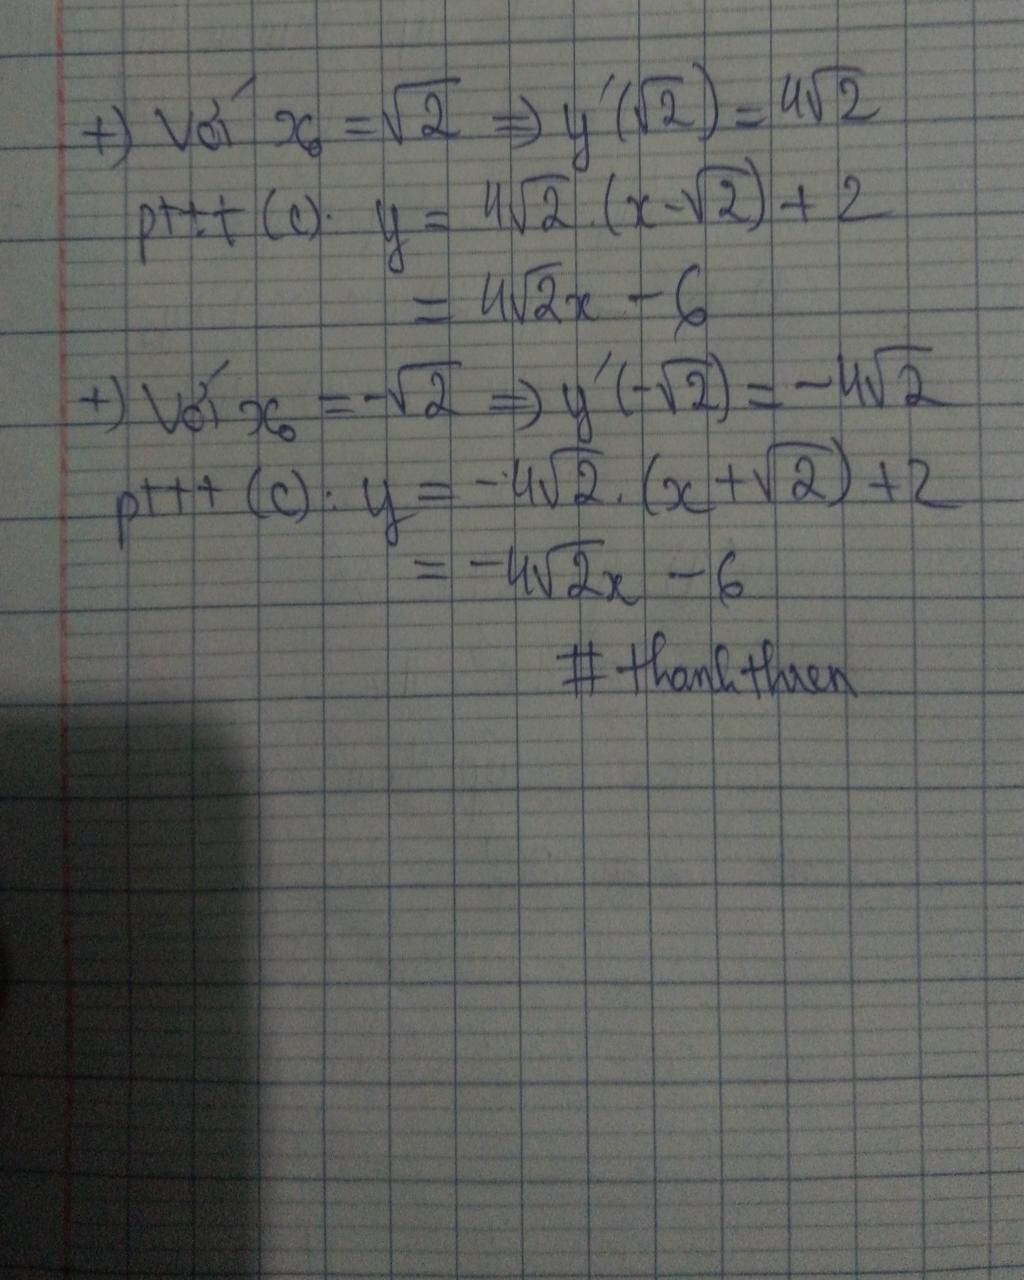 +) Với x₀ = √2 ⇒ y'(√2) = 4√2
pttt (C): y = 4√2.(x-√2) + 2
= 4√2x - 6
+) Với x₀ = -√2 ⇒ y'(-√2) = -4√2
pttt (C): y = -4√2.(x+√2) + 2
= -4√2x - 6
# thanhthuen